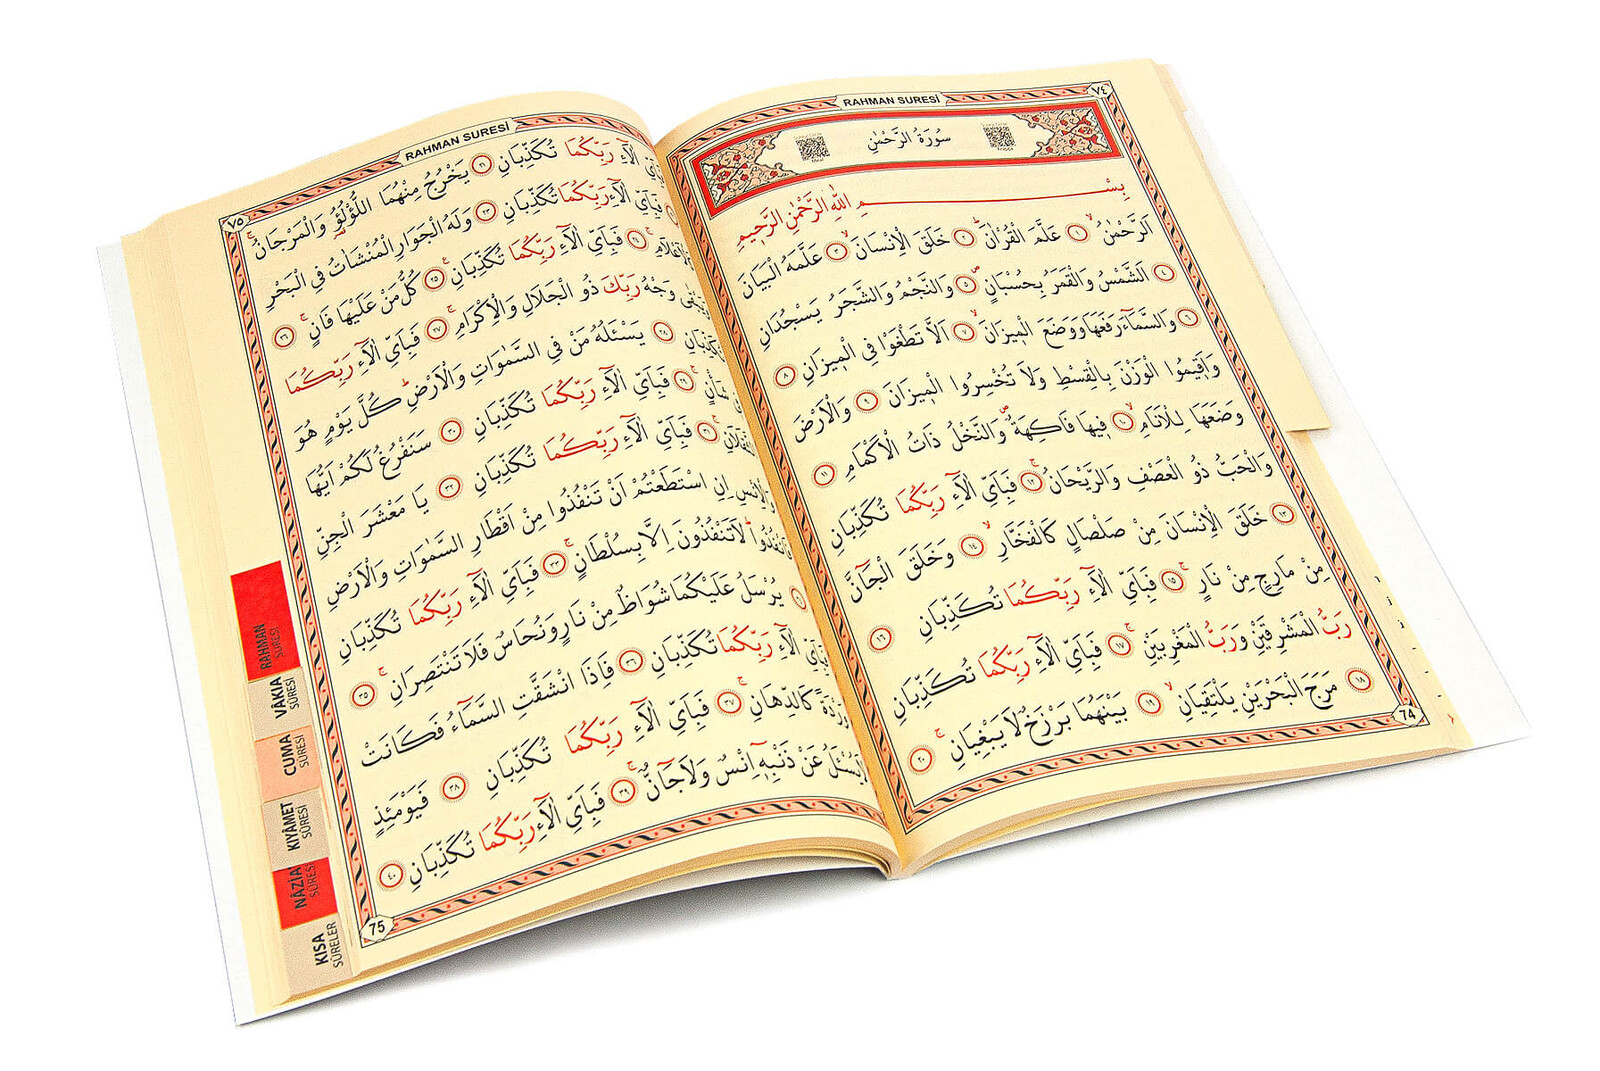 RAHMAN SURESİ
٧٤
سُورَةُ الرَّحْمٰنِ
بِسْمِ اللّٰهِ الرَّحْمٰنِ الرَّحٖيمِ
اَلرَّحْمٰنُۙ ١ عَلَّمَ الْقُرْاٰنَۜ ٢ خَلَقَ الْاِنْسَانَۙ ٣ عَلَّمَهُ الْبَيَانَ
٤ اَلشَّمْسُ وَالْقَمَرُ بِحُسْبَانٍۖ ٥ وَالنَّجْمُ وَالشَّجَرُ يَسْجُدَانِ
٦ وَالسَّمَٓاءَ رَفَعَهَا وَوَضَعَ الْمٖيزَانَۙ ٧ اَلَّا تَطْغَوْا فِي الْمٖيزَانِ ٨
وَاَقٖيمُوا الْوَزْنَ بِالْقِسْطِ وَلَا تُخْسِرُوا الْمٖيزَانَ ٩ وَالْاَرْضَ
وَضَعَهَا لِلْاَنَامِۙ ١٠ فٖيهَا فَاكِهَةٌۖ وَالنَّخْلُ ذَاتُ الْاَكْمَامِ ١١
وَالْحَبُّ ذُو الْعَصْفِ وَالرَّيْحَانُۚ ١٢ فَبِاَيِّ اٰلَٓاءِ رَبِّكُمَا تُكَذِّبَانِ
١٣ خَلَقَ الْاِنْسَانَ مِنْ صَلْصَالٍ كَالْفَخَّارِۙ ١٤ وَخَلَقَ الْجَٓانَّ
مِنْ مَارِجٍ مِنْ نَارٍۚ ١٥ فَبِاَيِّ اٰلَٓاءِ رَبِّكُمَا تُكَذِّبَانِ ١٦
رَبُّ الْمَشْرِقَيْنِ وَرَبُّ الْمَغْرِبَيْنِۚ ١٧ فَبِاَيِّ اٰلَٓاءِ رَبِّكُمَا تُكَذِّبَانِ
١٨ مَرَجَ الْبَحْرَيْنِ يَلْتَقِيَانِۙ ١٩ بَيْنَهُمَا بَرْزَخٌ لَا يَبْغِيَانِۚ ٢٠
74
RAHMAN SURESİ
٧٥
اٰلَٓاءِ رَبِّكُمَا تُكَذِّبَانِ ٢١ يَخْرُجُ مِنْهُمَا اللُّؤْلُؤُ وَالْمَرْجَانُۚ
فَبِاَيِّ اٰلَٓاءِ رَبِّكُمَا تُكَذِّبَانِ ٢٣ وَلَهُ الْجَوَارِ الْمُنْشَاٰتُ فِي الْبَحْرِ
كَالْاَعْلَامِۚ ٢٤ فَبِاَيِّ اٰلَٓاءِ رَبِّكُمَا تُكَذِّبَانِۚ ٢٥ كُلُّ مَنْ عَلَيْهَا فَانٍۚ ٢٦
وَيَبْقٰى وَجْهُ رَبِّكَ ذُو الْجَلَالِ وَالْاِكْرَامِۚ ٢٧ فَبِاَيِّ اٰلَٓاءِ رَبِّكُمَا
تُكَذِّبَانِ ٢٨ يَسْـَٔلُهُ مَنْ فِي السَّمٰوَاتِ وَالْاَرْضِۜ كُلَّ يَوْمٍ هُوَ
شَأْنٍۚ ٢٩ فَبِاَيِّ اٰلَٓاءِ رَبِّكُمَا تُكَذِّبَانِ ٣٠ سَنَفْرُغُ لَكُمْ اَيُّهَا
الثَّقَلَانِۚ ٣١ فَبِاَيِّ اٰلَٓاءِ رَبِّكُمَا تُكَذِّبَانِ ٣٢ يَا مَعْشَرَ الْجِنِّ
وَالْاِنْسِ اِنِ اسْتَطَعْتُمْ اَنْ تَنْفُذُوا مِنْ اَقْطَارِ السَّمٰوَاتِ وَالْاَرْضِ
فَانْفُذُواۜ لَا تَنْفُذُونَ اِلَّا بِسُلْطَانٍۚ ٣٣ فَبِاَيِّ اٰلَٓاءِ رَبِّكُمَا تُكَذِّبَانِ
يُرْسَلُ عَلَيْكُمَا شُوَاظٌ مِنْ نَارٍ وَنُحَاسٌ فَلَا تَنْتَصِرَانِۚ ٣٥
فَبِاَيِّ اٰلَٓاءِ رَبِّكُمَا تُكَذِّبَانِ ٣٦ فَاِذَا انْشَقَّتِ السَّمَٓاءُ فَكَانَتْ
وَرْدَةً كَالدِّهَانِۚ ٣٧ فَبِاَيِّ اٰلَٓاءِ رَبِّكُمَا تُكَذِّبَانِ ٣٨ فَيَوْمَئِذٍ
يُسْـَٔلُ عَنْ ذَنْبِهٖٓ اِنْسٌ وَلَا جَٓانٌّۚ ٣٩ فَبِاَيِّ اٰلَٓاءِ رَبِّكُمَا تُكَذِّبَانِ ٤٠
75
RAHMAN SURESİ
VÂKIA SÛRESİ
CUMA SÛRESİ
KIYÂMET SÛRESİ
NÂZİA SÛRESİ
KISA SÛRELER